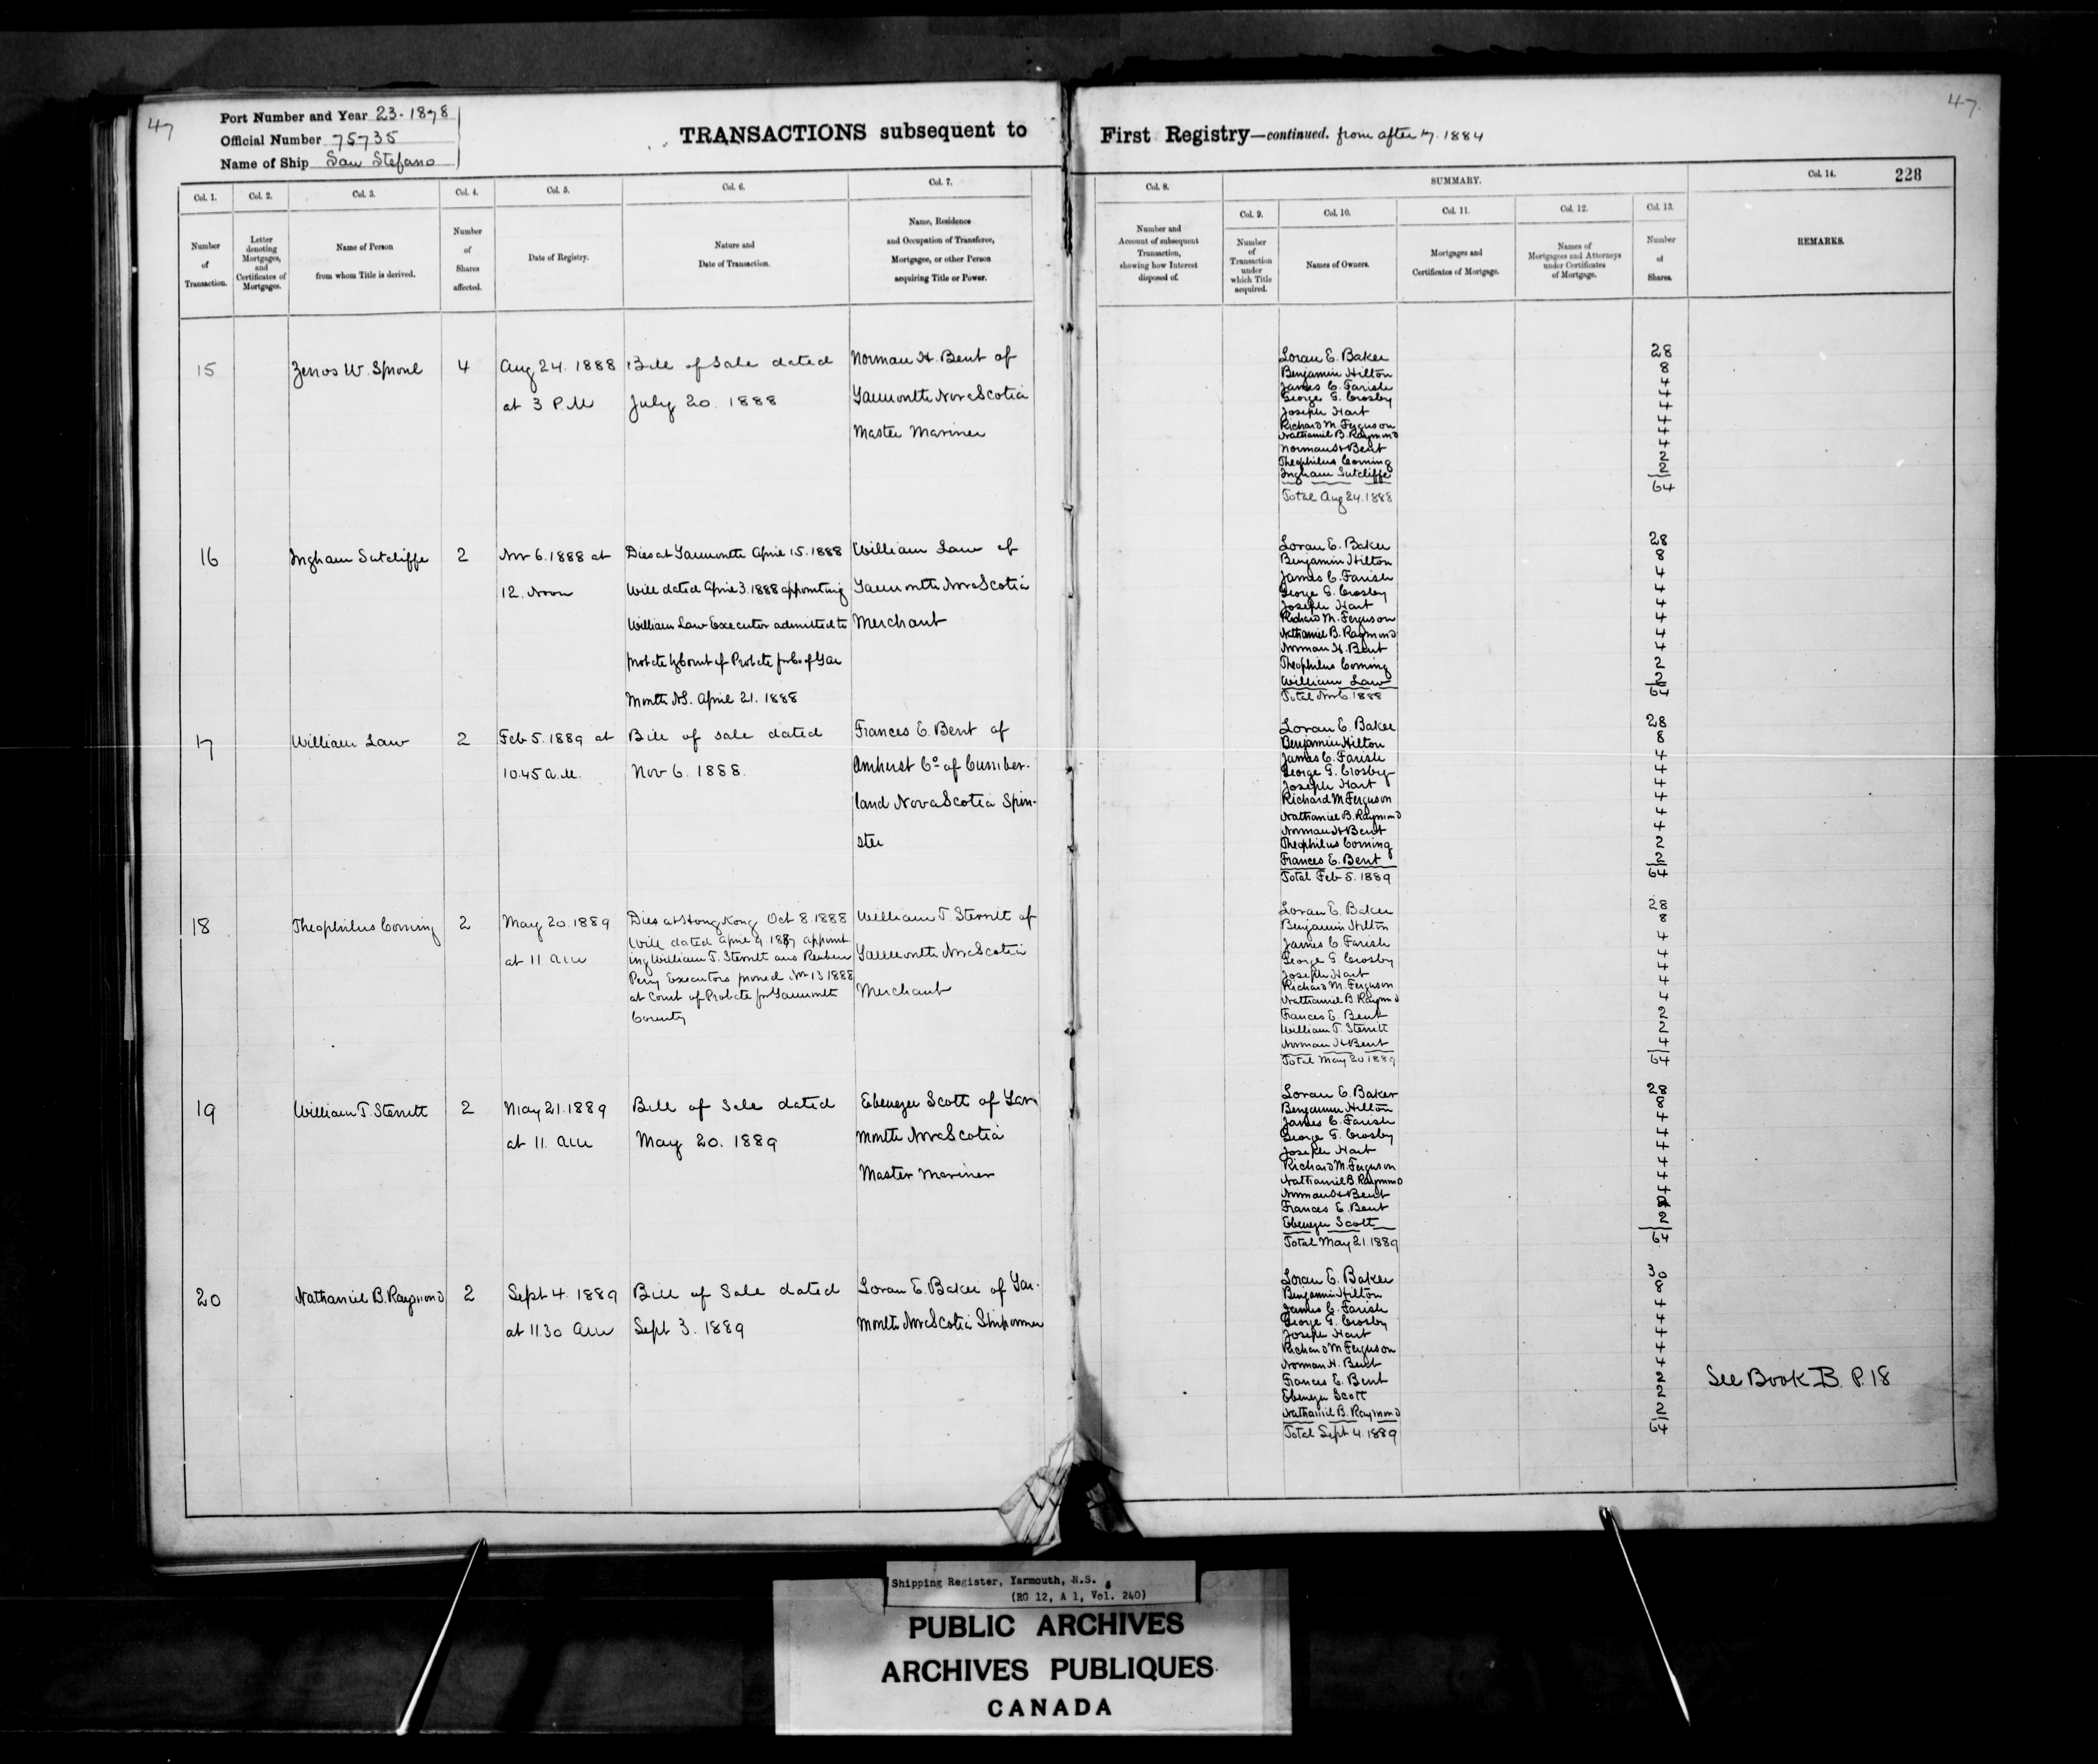 47
Port Number and Year 23-1878
Official Number 75735
Name of Ship San Stefano
TRANSACTIONS subsequent to First Registry—continued. from after 17. 1884
47.
228
Col. 1. Col. 2. Col. 3. Col. 4. Col. 5. Col. 6. Col. 7. Col. 8. SUMMARY. Col. 14.
Col. 9. Col. 10. Col. 11. Col. 12. Col. 13.
Number of Transaction.
Letter denoting Mortgages, and Certificates of Mortgages.
Name of Person from whom Title is derived.
Number of Shares affected.
Date of Registry.
Nature and Date of Transaction.
Name, Residence and Occupation of Transferee, Mortgagee, or other Person acquiring Title or Power.
Number and Account of subsequent Transaction, showing how Interest disposed of.
Number of Transaction under which Title acquired.
Names of Owners.
Mortgages and Certificates of Mortgage.
Names of Mortgagees and Attorneys under Certificates of Mortgage.
Number of Shares.
REMARKS.
15
Zenos W. Sproul
4
Aug 24. 1888
at 3 P.M
Bill of Sale dated
July 20. 1888
Norman H. Bent of
Yarmouth Nova Scotia
Master Mariner
Loran E. Baker 28
Benjamin Hilton 8
James C. Farish 4
George G. Crosby 4
Joseph Hart 4
Richard M. Ferguson 4
Nathaniel B. Raymond 4
Norman H Bent 4
Theophilus Corning 2
Ingham Sutcliffe 2
Total Aug 24. 1888 64
16
Ingham Sutcliffe
2
Nov 6. 1888 at
12. Noon
Dies at Yarmouth April 15. 1888
Will dated April 3. 1888 appointing
William Law Executor admitted to
probate by Court of Probate for Co of Yar
mouth N.S. April 21. 1888
William Law of
Yarmouth Nova Scotia
Merchant
Loran E. Baker 28
Benjamin Hilton 8
James C. Farish 4
George G. Crosby 4
Joseph Hart 4
Richard M. Ferguson 4
Nathaniel B. Raymond 4
Norman H. Bent 4
Theophilus Corning 2
William Law 2
Total Nov 6. 1888 64
17
William Law
2
Feb 5. 1889 at
10.45 a.m.
Bill of sale dated
Nov 6. 1888.
Frances E. Bent of
Amherst Co of Cumber-
land Nova Scotia Spin-
ster
Loran E. Baker 28
Benjamin Hilton 8
James C. Farish 4
George G. Crosby 4
Joseph Hart 4
Richard M Ferguson 4
Nathaniel B. Raymond 4
Norman H Bent 4
Theophilus Corning 2
Frances E. Bent 2
Total Feb 5. 1889 64
18
Theophilus Corning
2
May 20. 1889
at 11 am
Dies at Hong Kong Oct 8. 1888
Will dated April 4. 1887 appoint
ing William T. Sterritt and Reuben
Perry Executors proved Nov 13 1888
at Court of Probate for Yarmouth
County
William T. Sterritt of
Yarmouth Nova Scotia
Merchant
Loran E. Baker 28
Benjamin Hilton 8
James C Farish 4
George G. Crosby 4
Joseph Hart 4
Richard M. Ferguson 4
Nathaniel B. Raymond 4
Frances E. Bent 2
William T. Sterritt 2
Norman H Bent 4
Total May 20 1889 64
19
William T. Sterritt
2
May 21. 1889
at 11. am
Bill of Sale dated
May 20. 1889
Ebenezer Scott of Yar
mouth Nova Scotia
Master Mariner
Loran E. Baker 28
Benjamin Hilton 8
James C. Farish 4
George G. Crosby 4
Joseph Hart 4
Richard M. Ferguson 4
Nathaniel B. Raymond 4
Norman H Bent 4
Frances E. Bent 2
Ebenezer Scott 2
Total May 21. 1889 64
20
Nathaniel B. Raymond
2
Sept 4. 1889
at 11.30 am
Bill of Sale dated
Sept 3. 1889
Loran E. Baker of Yar-
mouth Nova Scotia Shipowner
Loran E. Baker 30
Benjamin Hilton 8
James C. Farish 4
George G. Crosby 4
Joseph Hart 4
Richard M Ferguson 4
Norman H. Bent 4
Frances E. Bent 2
Ebenezer Scott 2
Nathaniel B. Raymond 2
Total Sept 4. 1889 64
See Book B. P. 18
Shipping Register, Yarmouth, N.S.
(RG 12, A 1, Vol. 240)
PUBLIC ARCHIVES
ARCHIVES PUBLIQUES
CANADA